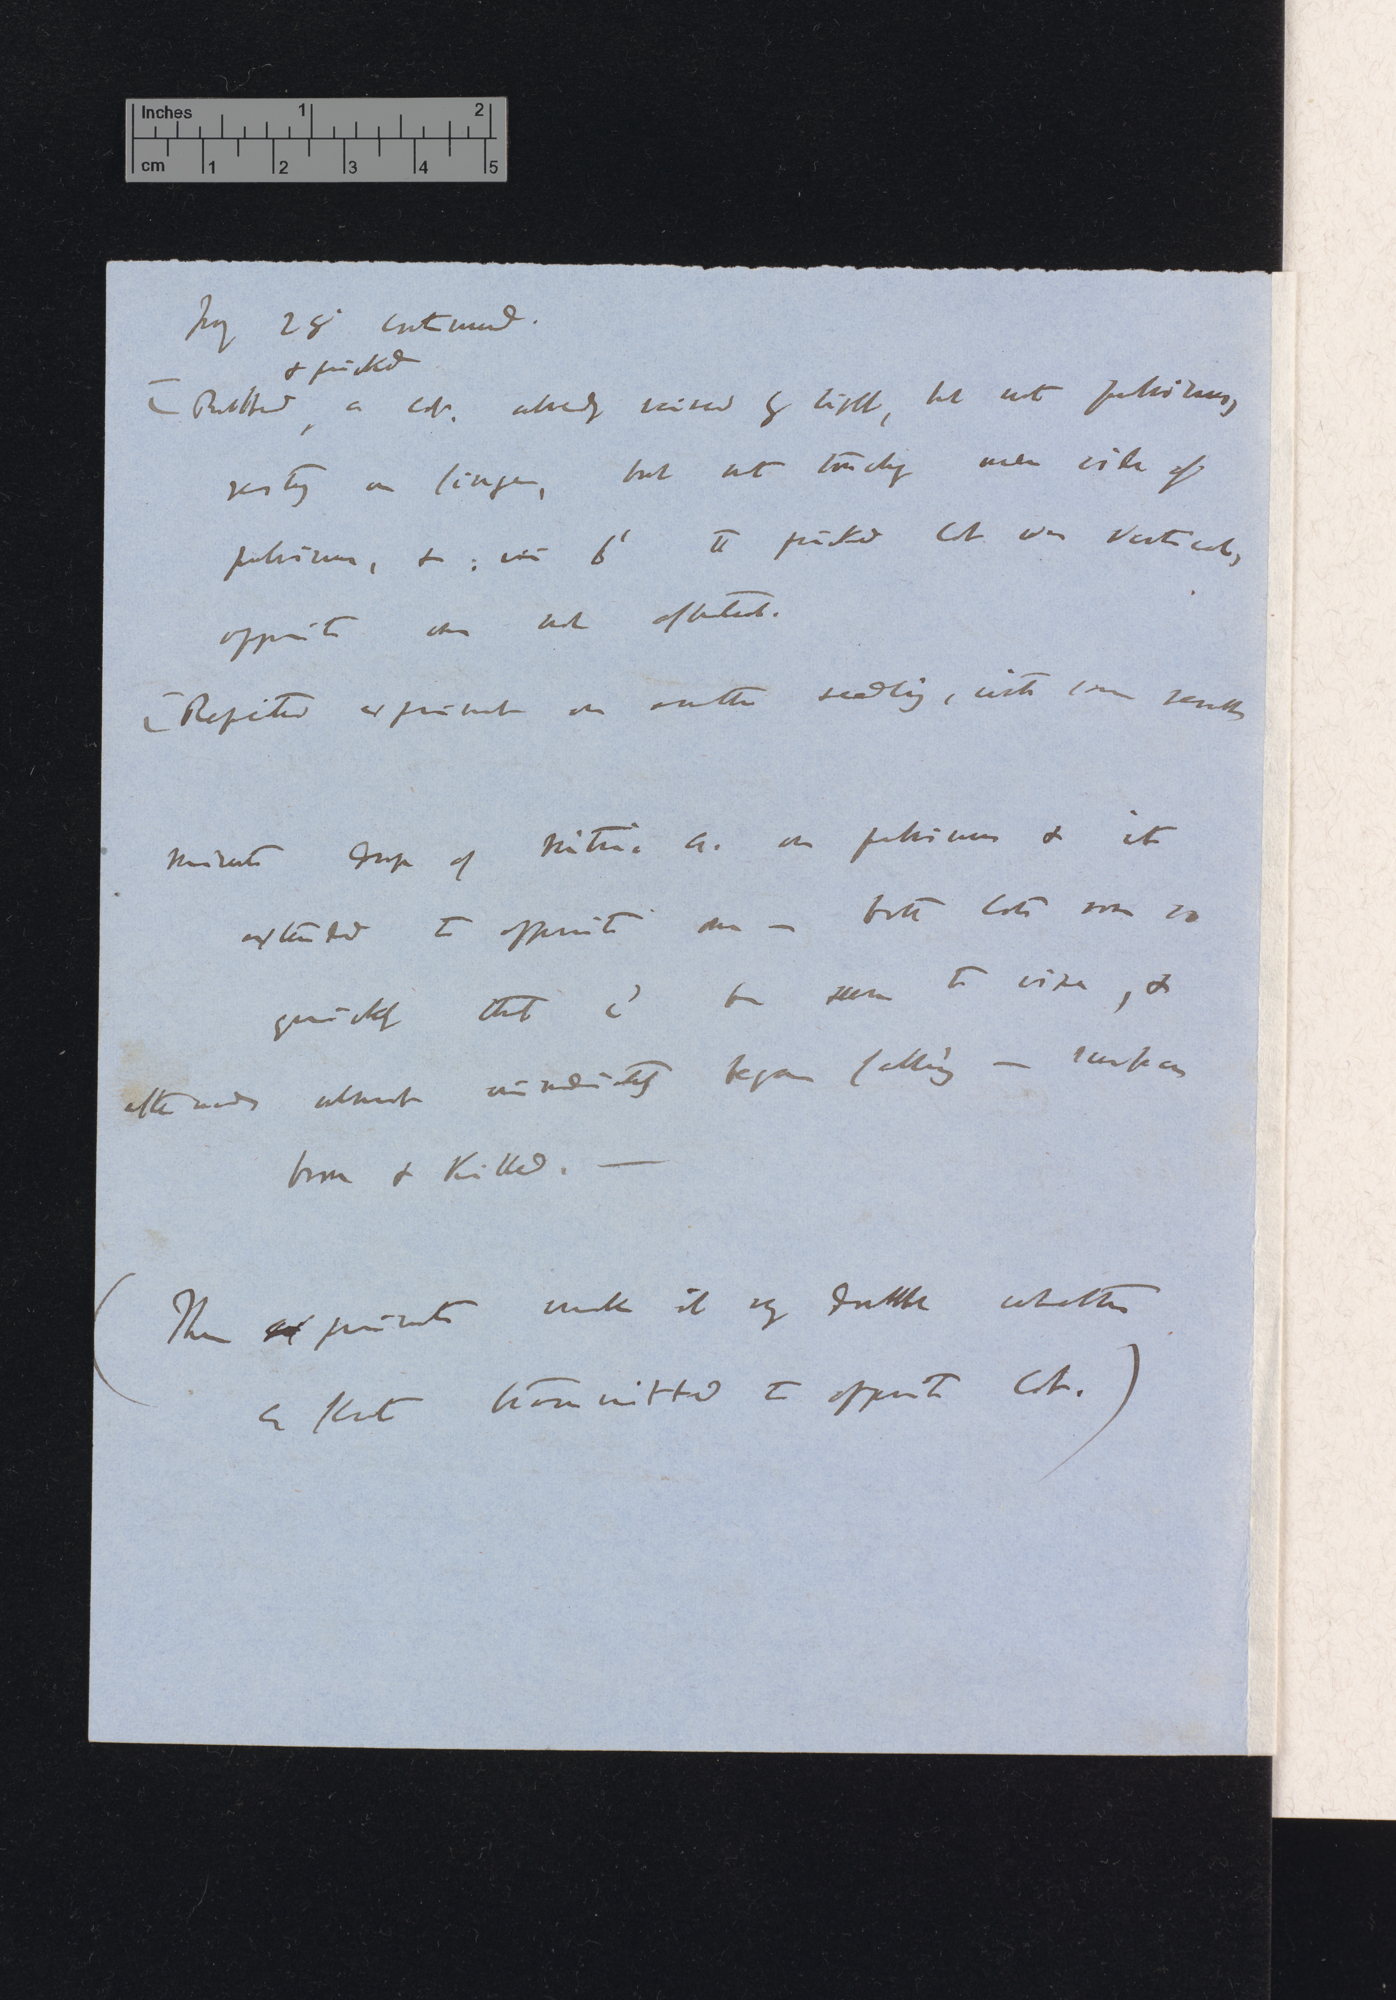 Inches 1 2
cm 1 2 3 4 5
28 continued.
& pricked
[Rubbed, a cot. already raised by light, but not pulvinus,
resting on finger, but not touching under side of
pulvinus, & in 6' the pricked Cot was vertical,
opposite one not affected.
[Repeated experiment on another seedling, with same result
Minute drop of Nitric a. on pulvinus & it
extended to opposite one — both Cots rose so
quickly that cd be seen to rise, &
afterwards almost immediately began falling — surface
brown & killed. —
(These experiments make it very doubtful whether
an effect transmitted to opposite Cot.)